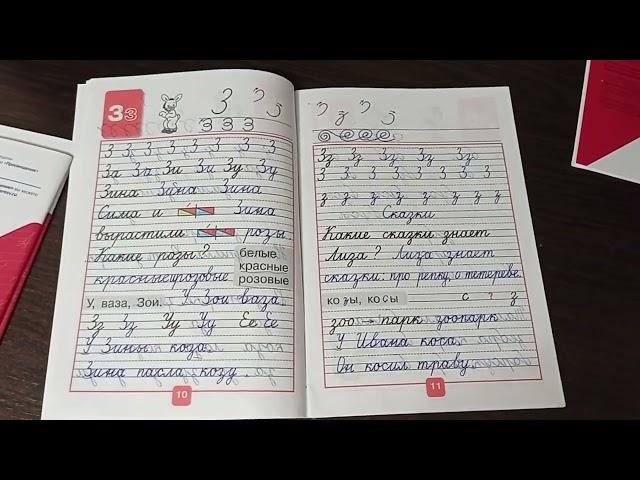 Зз
З З З
З З З З З З З З З
За За Зи Зи Зу Зу
Зина Зина Зина
Сима и Зина
вырастили розы
Какие розы? белые
красные
розовые
красные розовые
У, ваза, Зои. У Зои ваза
Зз Зз Уу Уу Ее Ее
У Зины коза.
Зина пасла козу.
10
З з З з
Зз Зз Зз Зз Зз
З З З З З З З З З
з з з з з з з з з
Сказки
Какие сказки знает
Лиза? Лиза знает
сказки: про репку, о тетереве.
козы, косы с ? з
зоо парк зоопарк
У Ивана коса.
Он косил траву.
11